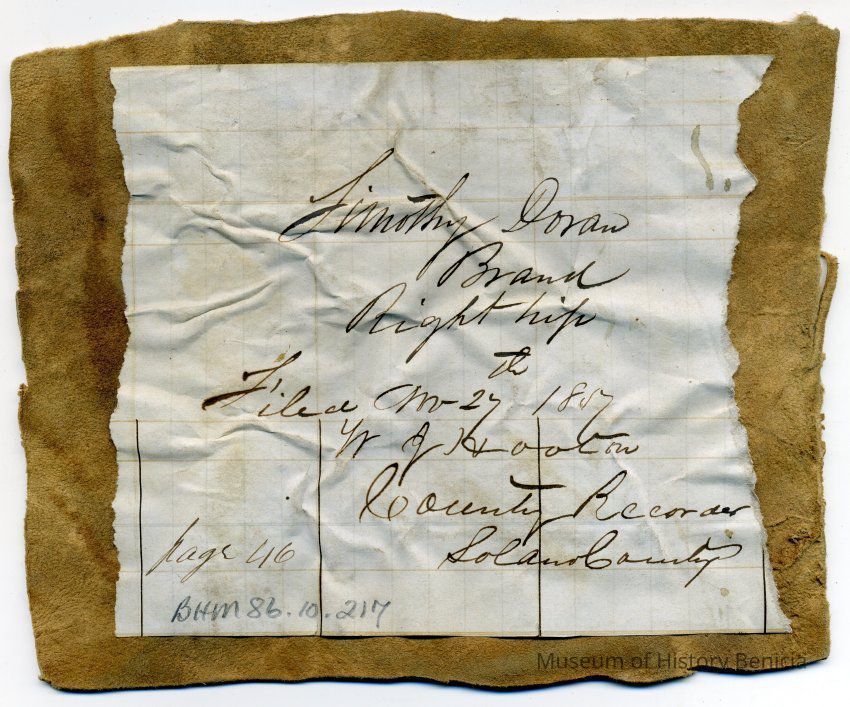 Timothy Doran
Brand
Right hip
Filed Nov 27th 1857
W J Hooton
County Recorder
Solano County
page 46
BHM 86.10.217
Museum of History Benicia